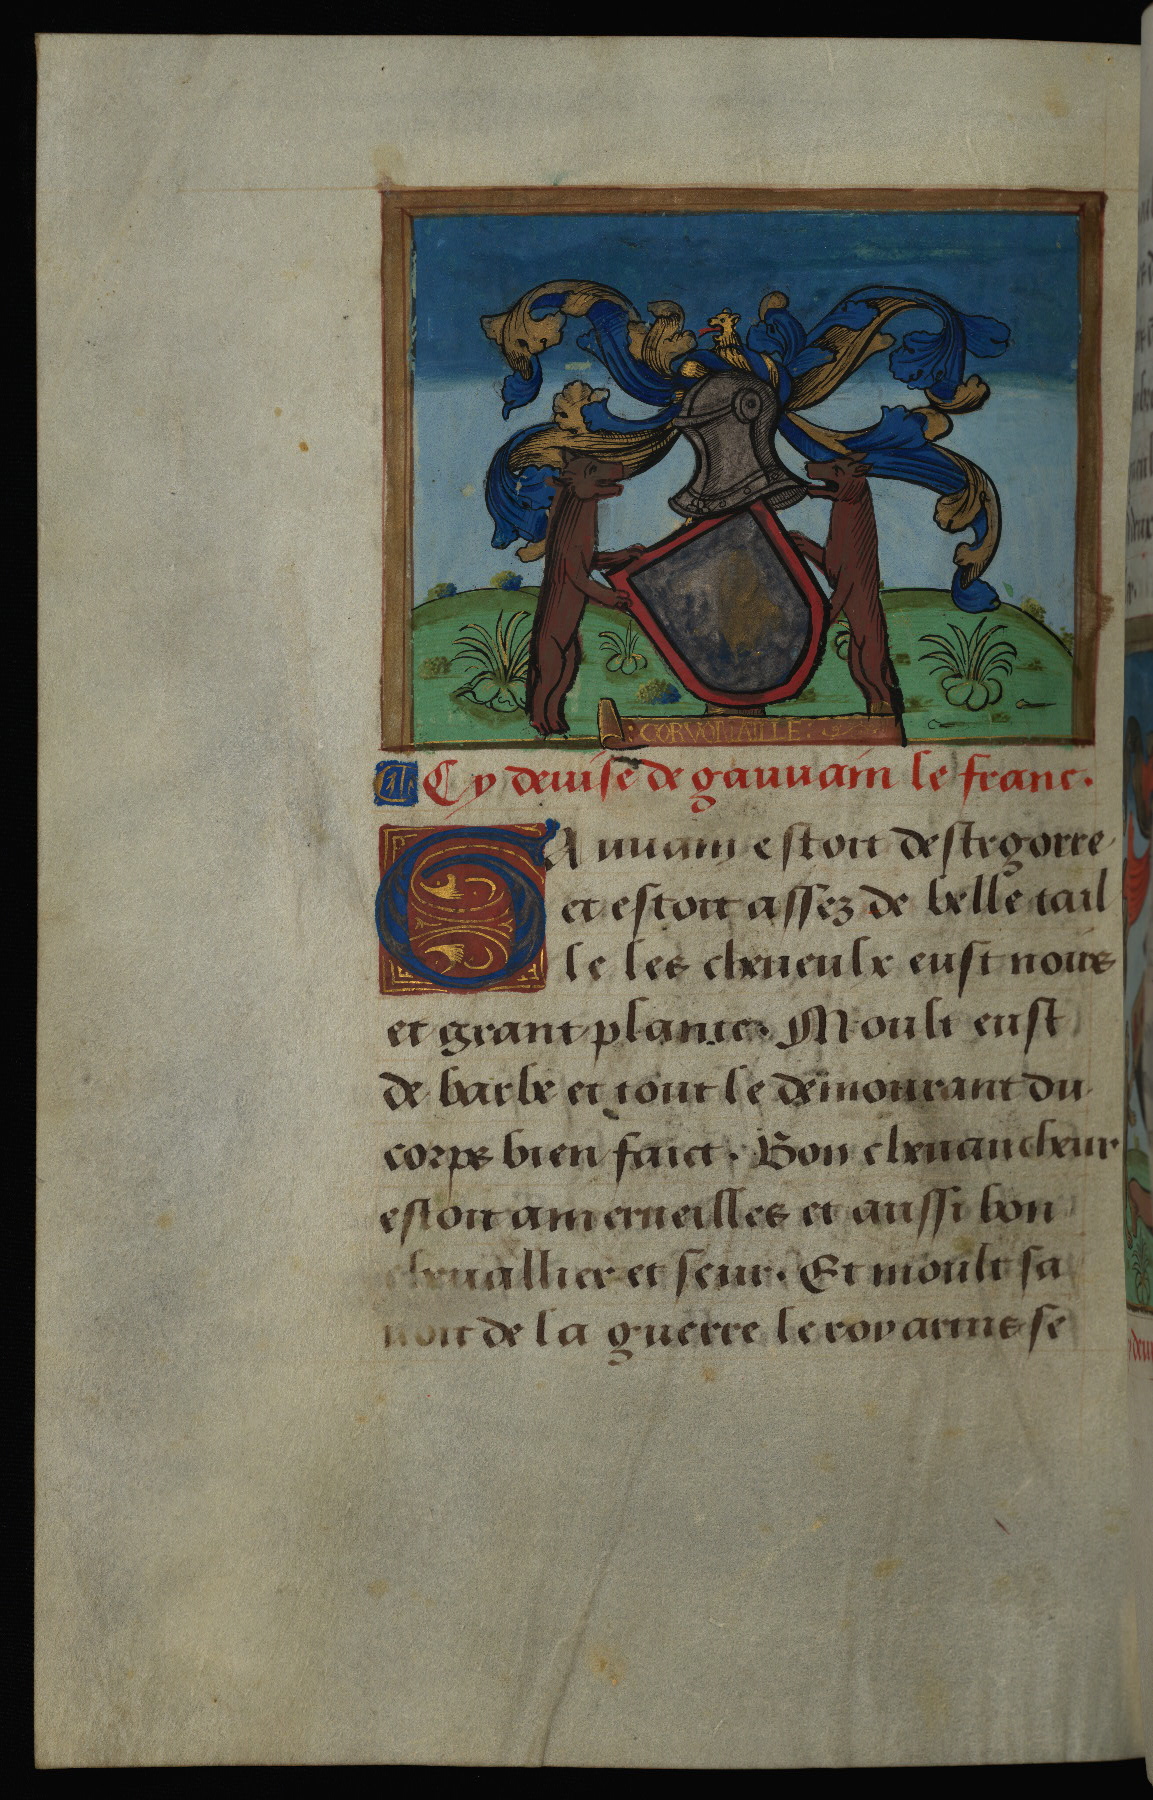 : CORVONTAILLE :
Cy deuise de gauuain le franc.
GAuuain estoit destrgorre
et estoit assez de belle tail
le les cheueulx eust noirs
et grant plante. Moult eust
de barbe et tout le demourant du
corps bien faict. Bon cheuaucheur
estoit amerueilles et aussi bon
cheuallier et seur. Et moult sa
uoit de la guerre le roy artus se